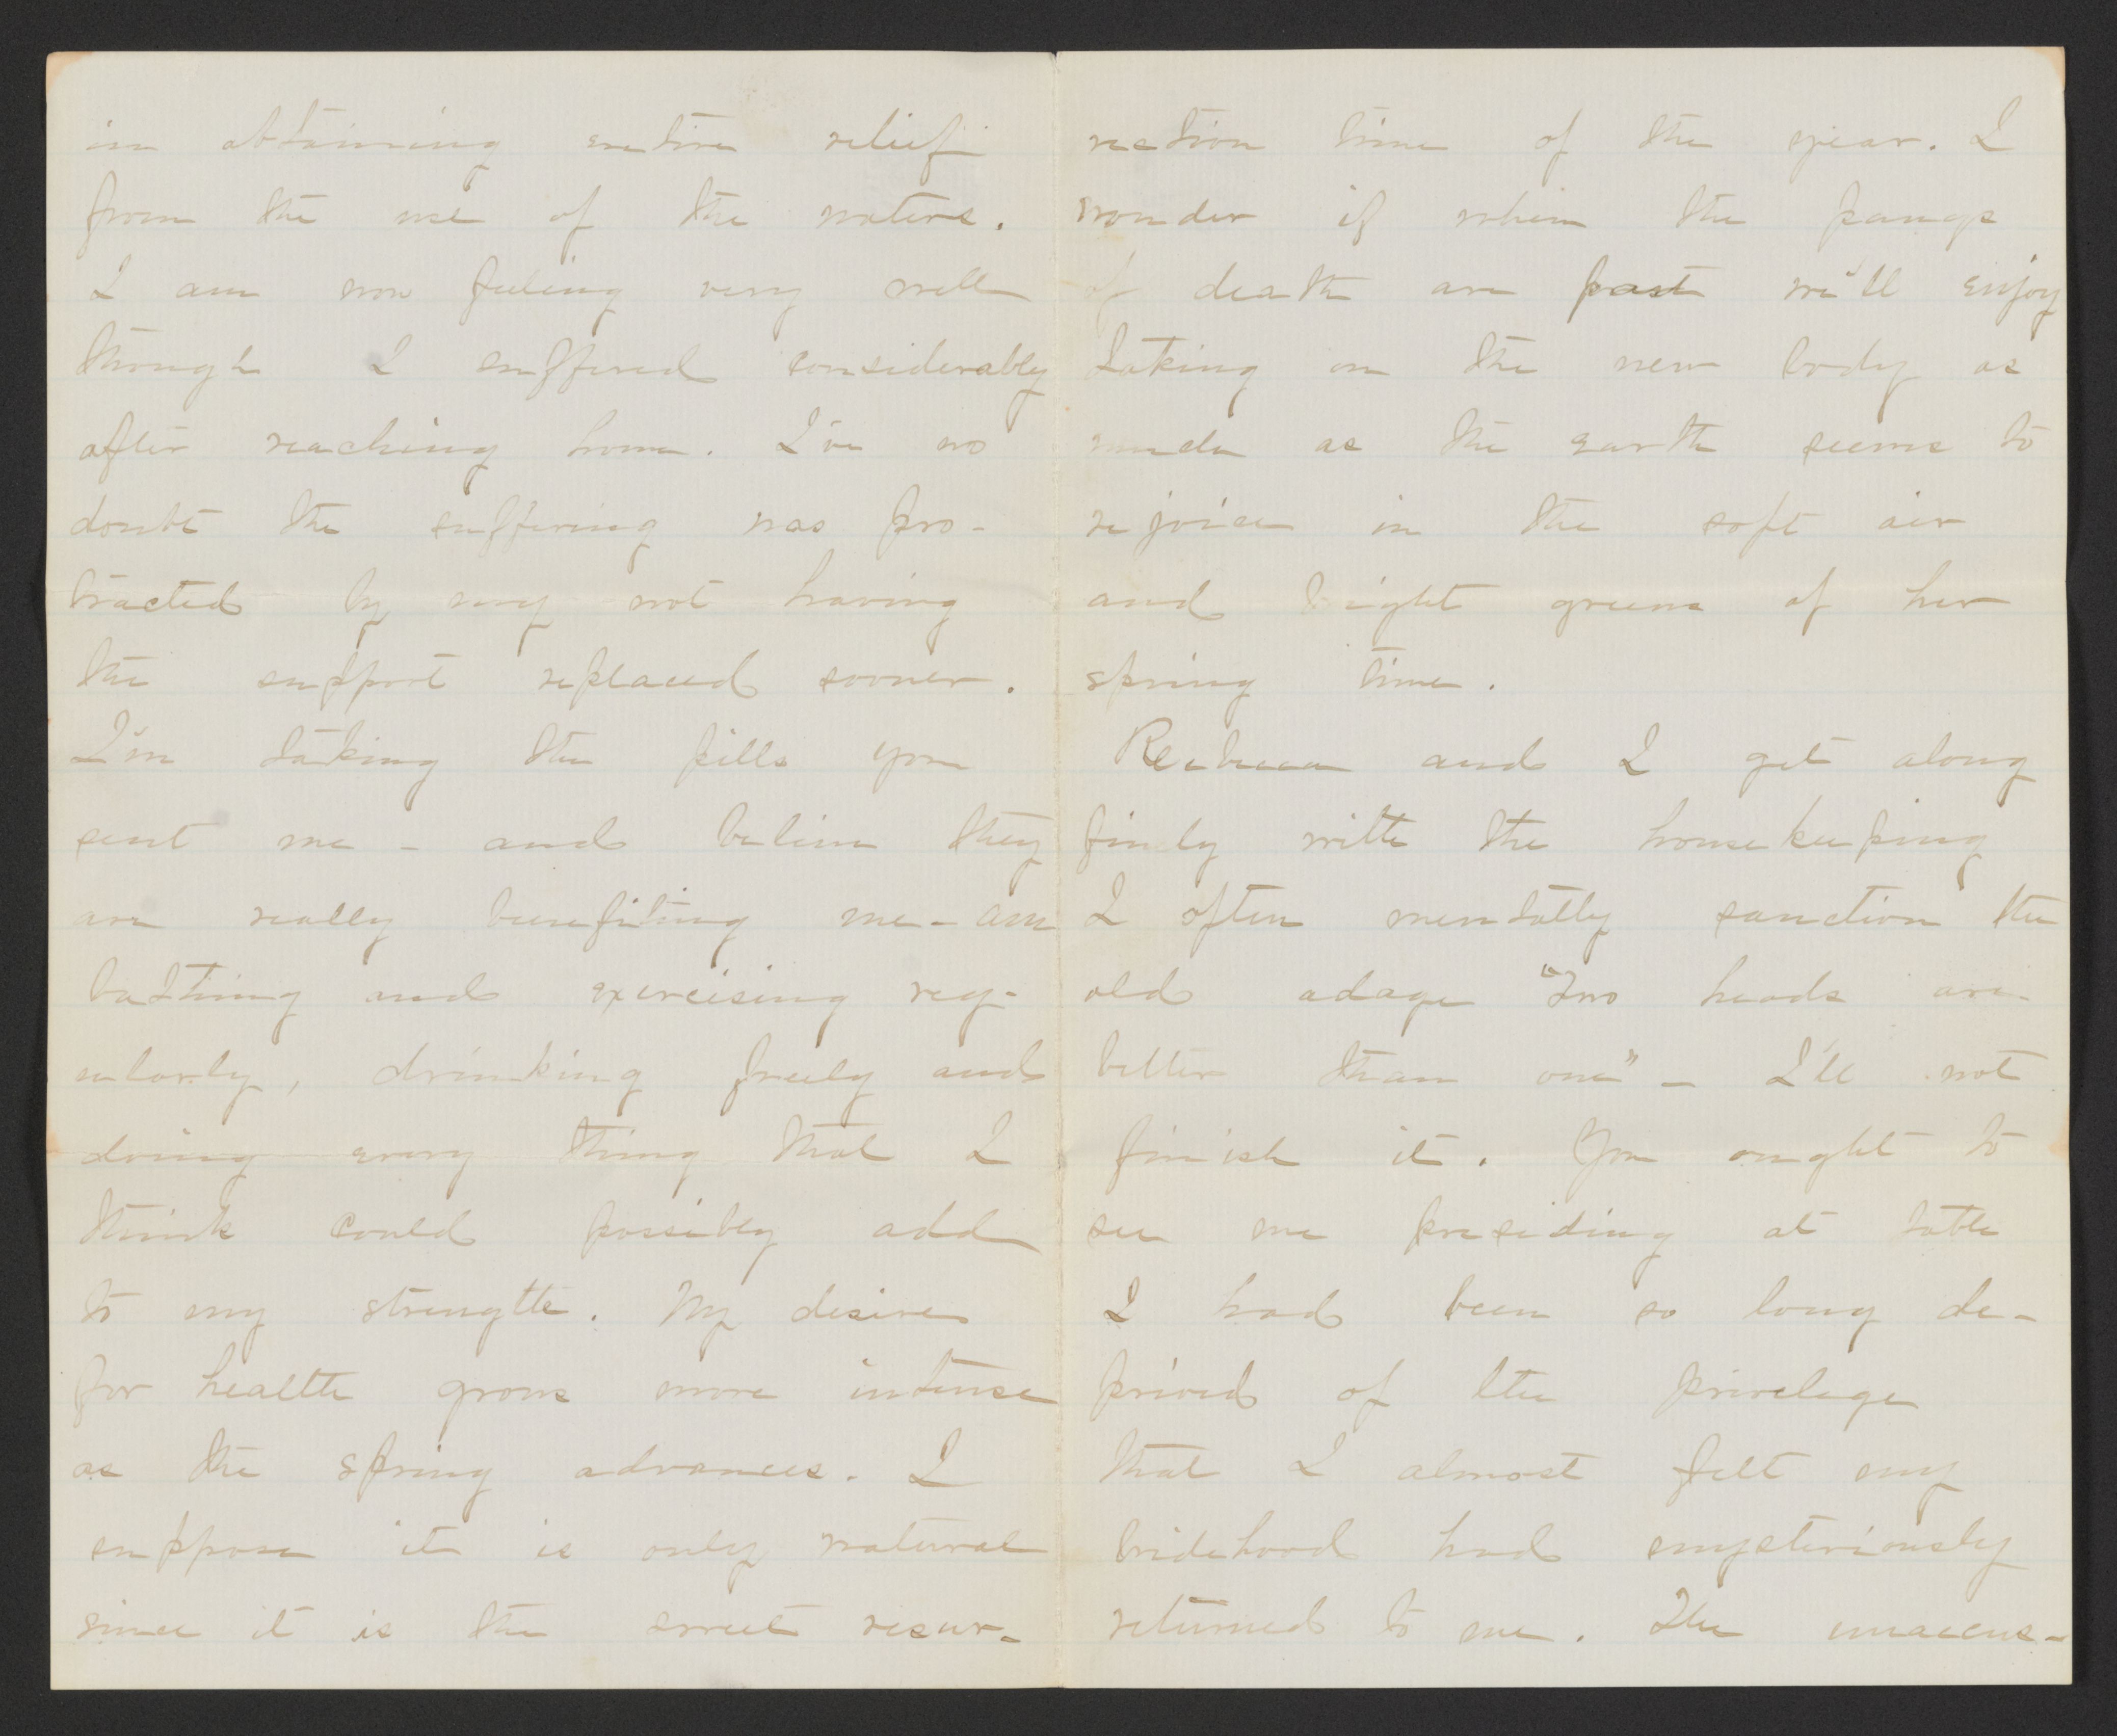 in obtaining entire relief
from the use of the waters.
I am now feeling very well
though I suffered considerably
after reaching home. I've no
doubt the suffering was pro-
tracted by my not having
the support replaced sooner.
I'm taking the pills you
sent me - and believe they
are really benefiting me - am
bathing and exercising reg-
ularly, drinking freely and
doing every thing that I
think could possibly add
to my strength. My desire
for health grows more intense
as the spring advances. I
suppose it is only natural
since it is the sweet resur-
rection time of the year. I
wonder if when the pangs
of death are past we'll enjoy
taking on the new body as
much as the earth seems to
rejoice in the soft air
and bright greens of her
spring time.
Rebecca and I get along
finely with the housekeeping
I often mentally sanction the
old adage "Two heads are
better than one" - I'll not
finish it. You ought to
see me presiding at table
I had been so long de-
prived of the privelege
that I almost felt my
bridehood had mysteriously
returned to me. The unaccus-